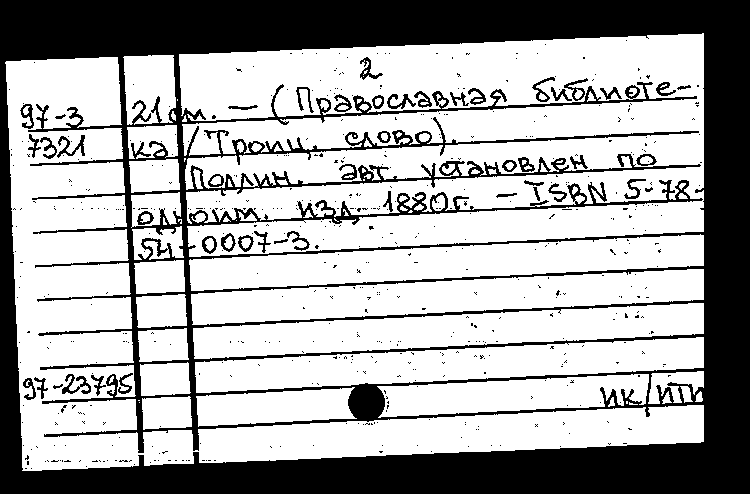 2
97-3 21 см. — (Православная библиоте-
7321 ка / Троиц. слово).
Подлин. авт. установлен по
одноим. изд. 1880г. — ISBN 5-78-
54-0007-3.
97-23795
ИК/ИТИ